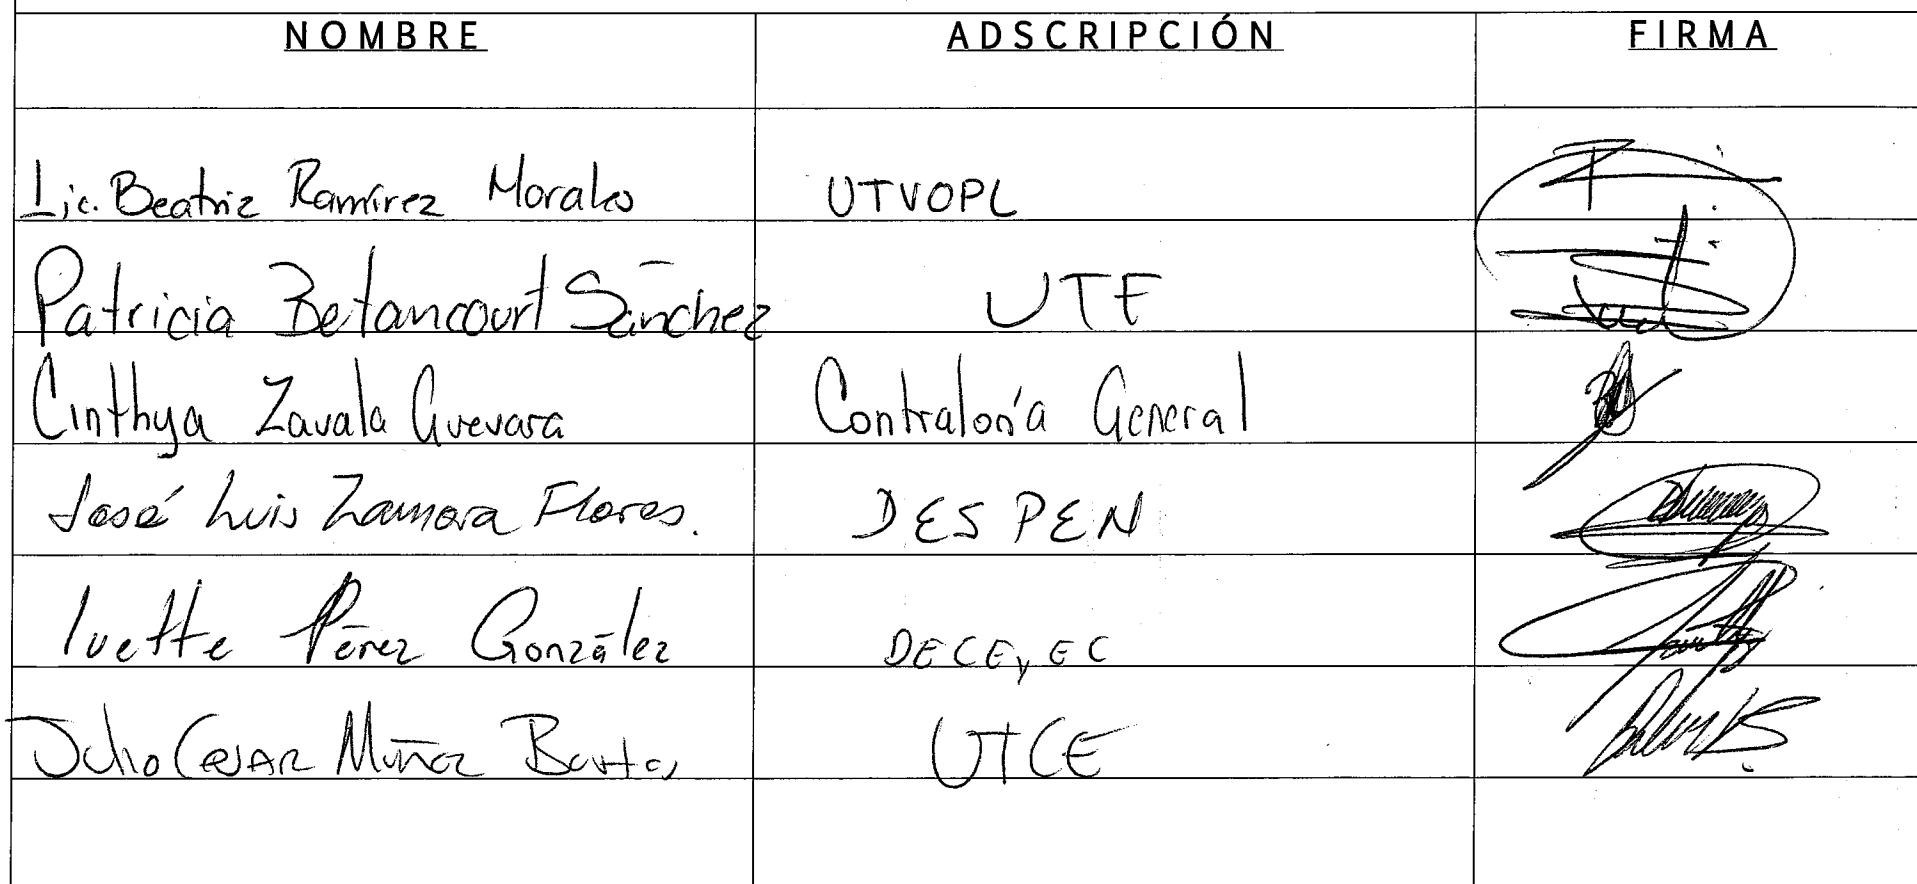 NOMBRE ADSCRIPCIÓN FIRMA
Lic. Beatriz Ramírez Morales UTVOPL
Patricia Betancourt Sánchez UTF
Cinthya Zavala Guevara Contraloría General
José Luis Zamora Flores. DESPEN
Ivette Pérez González DECEyEC
Julio CESAR Muñoz UTCE